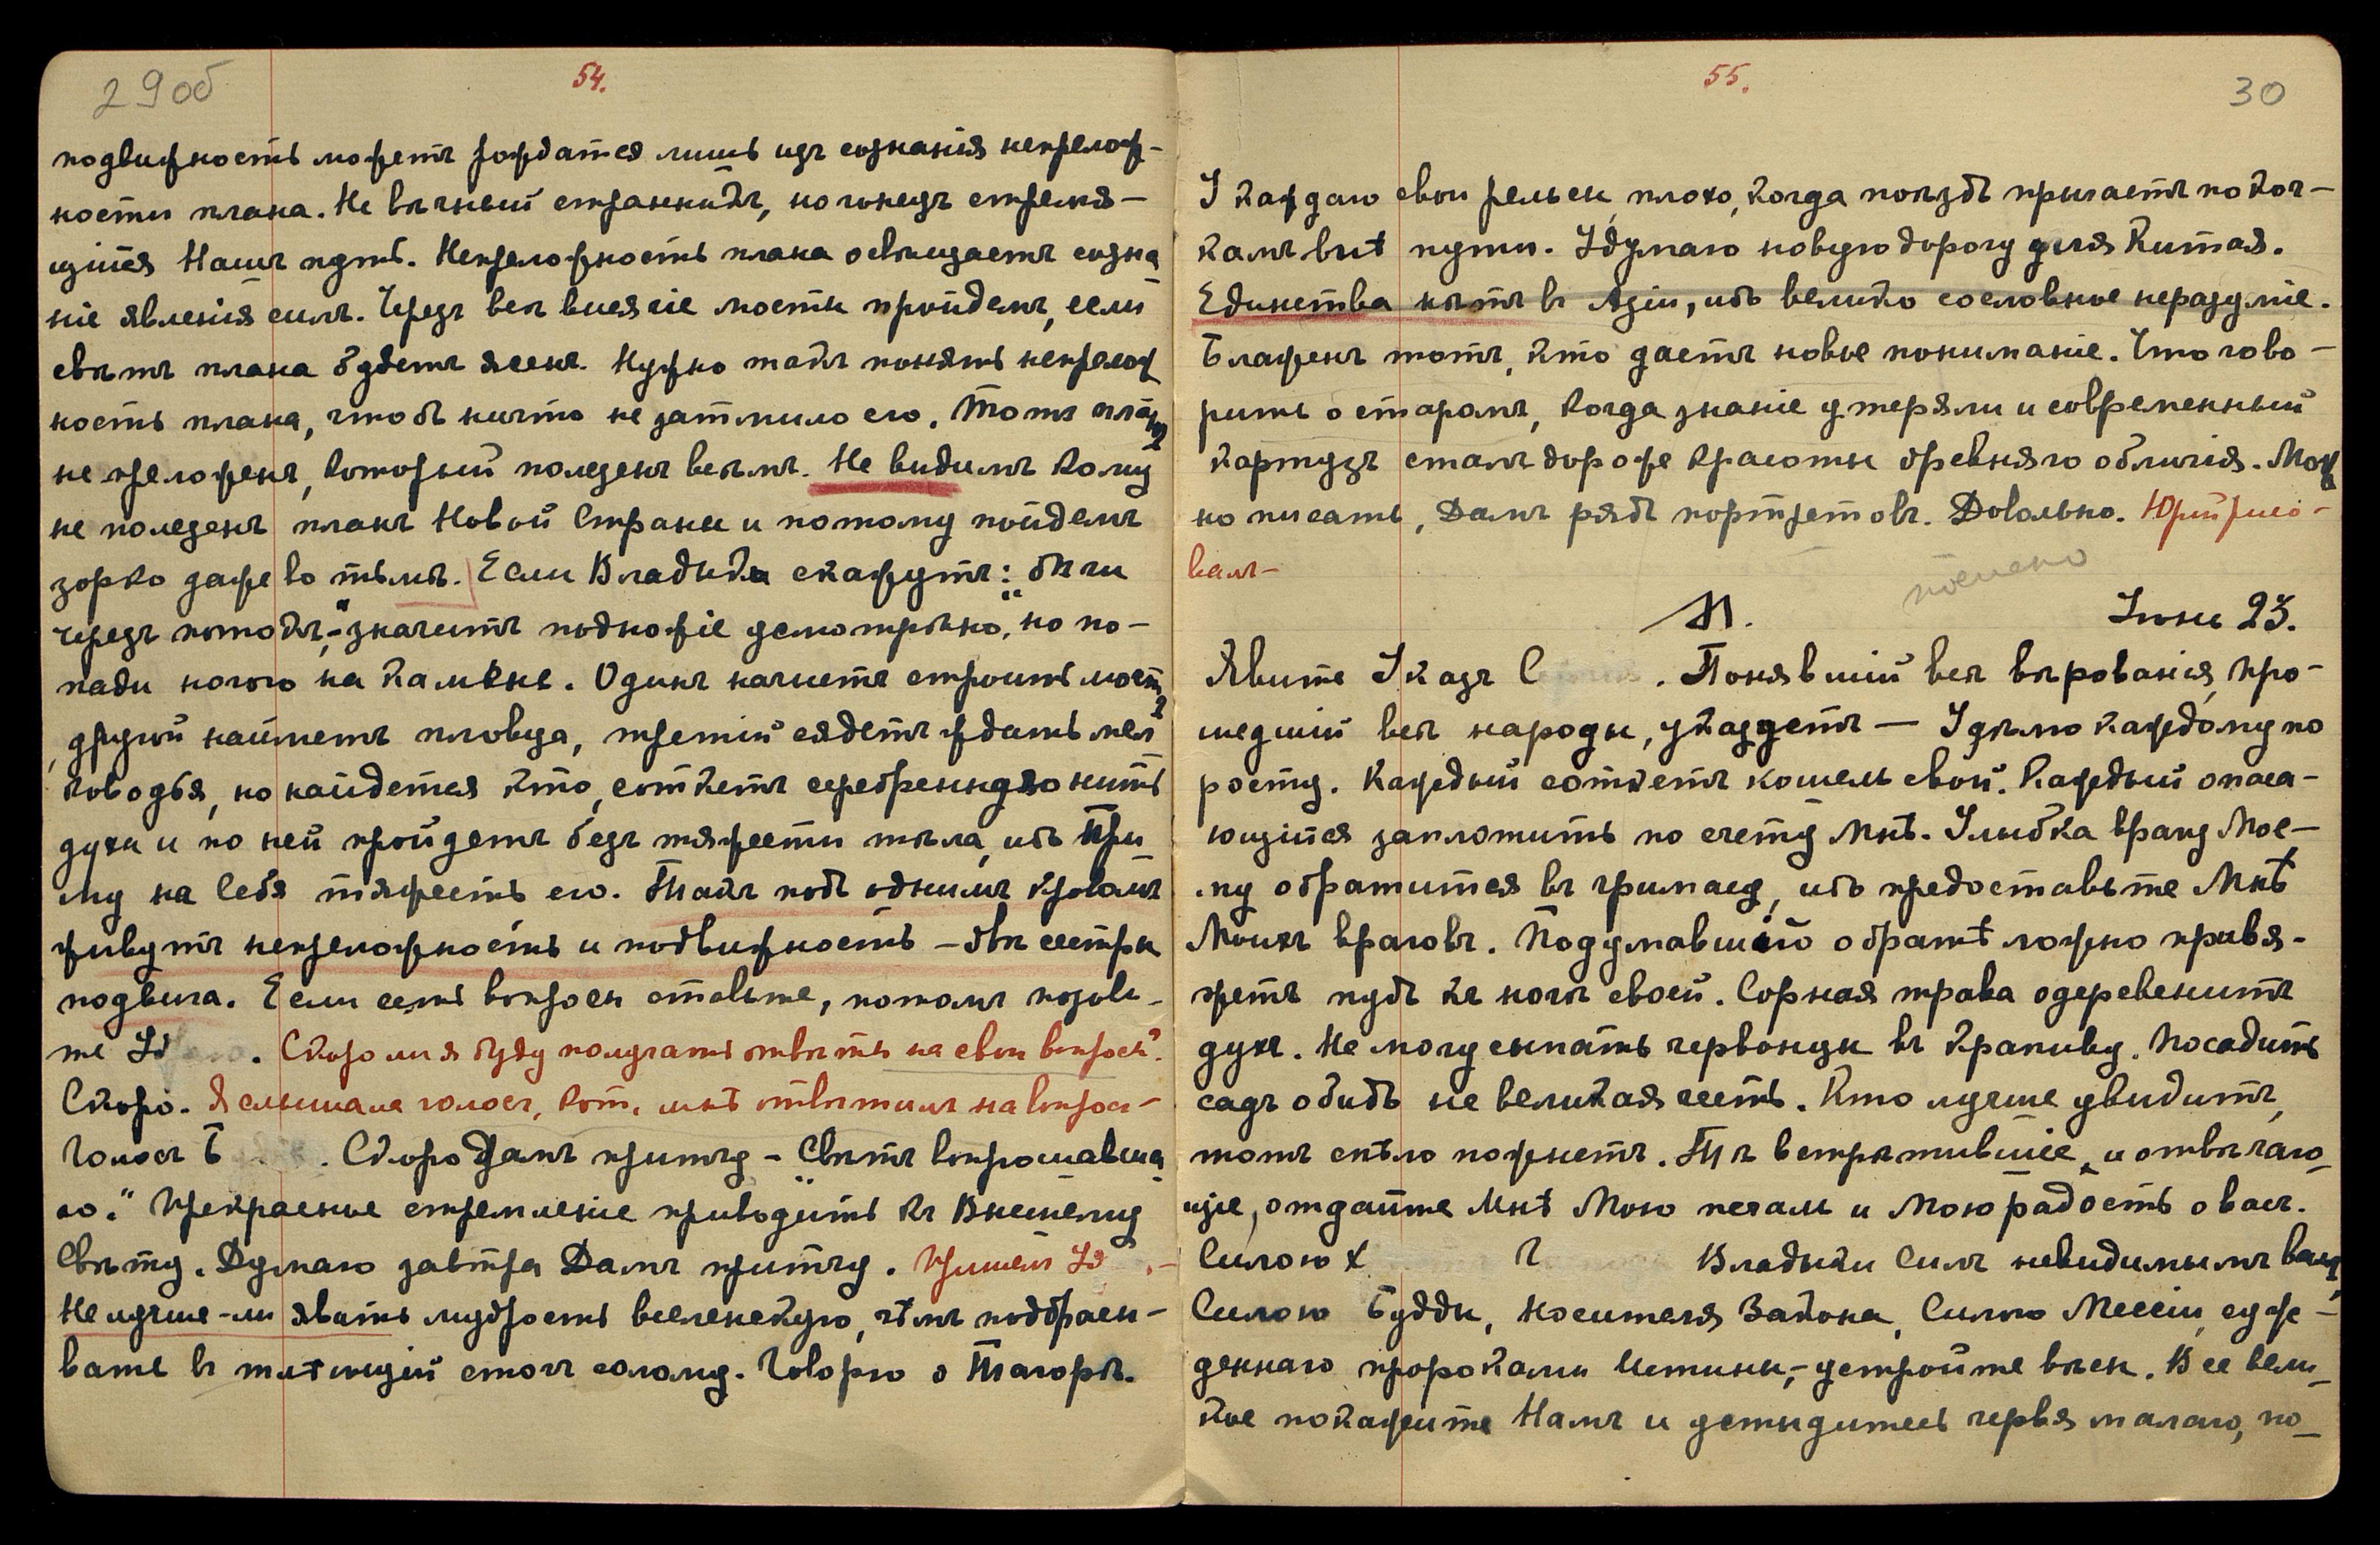 29об
54.
подвижность можетъ рождатся лишь изъ сознанія непрелож-
ности плана. Не вѣчный странникъ, но гонецъ стремя-
щійся Нашъ путь. Непреложность плана освѣщаетъ созна
ніе явленія силъ. Черезъ всѣ висячіе мосты пройдемъ, если
свѣтъ плана будетъ ясенъ. Нужно такъ понять непрелож
ность плана, чтобъ ничто не затмило его. Тотъ планъ
непреложенъ, который полезенъ всѣмъ. Не видимъ кому
не полезенъ планъ Новой Страны и потому пойдемъ
зорко даже во тьмѣ. Если Владыки скажутъ: „бѣги
черезъ потокъ,“ – значитъ подножіе усмотрѣно, но по-
пади ногою на камень. Одинъ начнетъ строить мостъ,
другой найметъ пловца, третій сядетъ ждать мел
ководья, но найдется кто, соткетъ серебренную нить
духа и по ней пройдетъ безъ тяжести тѣла, ибо При
му на Себя тяжесть его. Такъ подъ однимъ кровомъ
живутъ непреложность и подвижность – двѣ сестры
подвига. Если есть вопросы ставьте, потомъ позови-
те Уд . Скоро ли я буду получать отвѣты на свои вопросы?
Скоро. Я слышала голосъ, кот. мнѣ отвѣтилъ на вопросъ –
Голосъ Б . Скоро Дамъ притчу – „Свѣтъ вопрошавша
го.“ Прекрасное стремленіе приводитъ къ Внешнему
Свѣту. Думаю завтра Дамъ притчу. Пришелъ Уд . –
Не лучше-ли явить мудрость вселенскую, чѣмъ подбрасы-
вать въ тлѣющій стогъ солому. Говорю о Тагорѣ.
55.
30
У каждаго свои рельсы, плохо, когда поѣздъ прыгаетъ по коч-
камъ внѣ пути. Удумаю новую дорогу для Китая.
Единства нѣтъ въ Азіи, ибо велико сословное неразуміе.
Блаженъ тотъ, кто даетъ новое пониманіе. Что гово-
рить о старомъ, когда знаніе утеряли и современный
картузъ сталъ дороже красоты древняго обличія. Мож
но писать, Дамъ рядъ портретовъ. Довольно. Юрій рисо-
валъ –
М. Іюнь 23.
Явите Указъ С . Понявшій всѣ вѣрованія, про-
шедшій всѣ народы, укажетъ – Удѣлю каждому по
росту. Каждый соткетъ кошель свой. Каждый опаса-
ющійся заплотить по счету Мнѣ. Улыбка врагу Мое-
му обратится въ гримасу, ибо предоставьте Мнѣ
Моихъ враговъ. Подумавшій о братѣ ложно привя-
жетъ пудъ къ ногѣ своей. Сорная трава одеревенитъ
духъ. Не могу сыпать червонцы въ крапиву. Посадить
садъ обидъ не великая честь. Кто лучше увидитъ,
тотъ спѣло пожнетъ. Тѣ встрѣтившіе, и отвѣчаю-
щіе, отдайте Мнѣ Мою печаль и Мою радость о васъ.
Силою Х Г Владыки Силъ невидимымъ вамъ,
Силою Будды, Носителя Закона, Силою Мессіи, сужденнаго
пророками Истины, – устройте вѣсы. Все вели-
кое покажите Намъ и устыдитесь червя малаго, по-